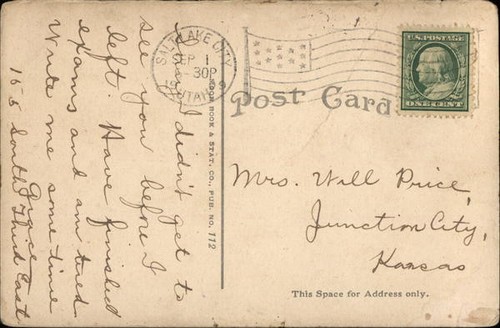 Sorry I didn't get to
see you before I
left. Have finished
exams and am tired.
Write me some time
Grace
165 South Third East
SALT LAKE CITY
SEP 1
30P
UTAH
Post Card
BOOK & STAT. CO., PUB. NO. 172
U.S. POSTAGE
ONE CENT
Mrs. Will Price,
Junction City,
Kansas
This Space for Address only.